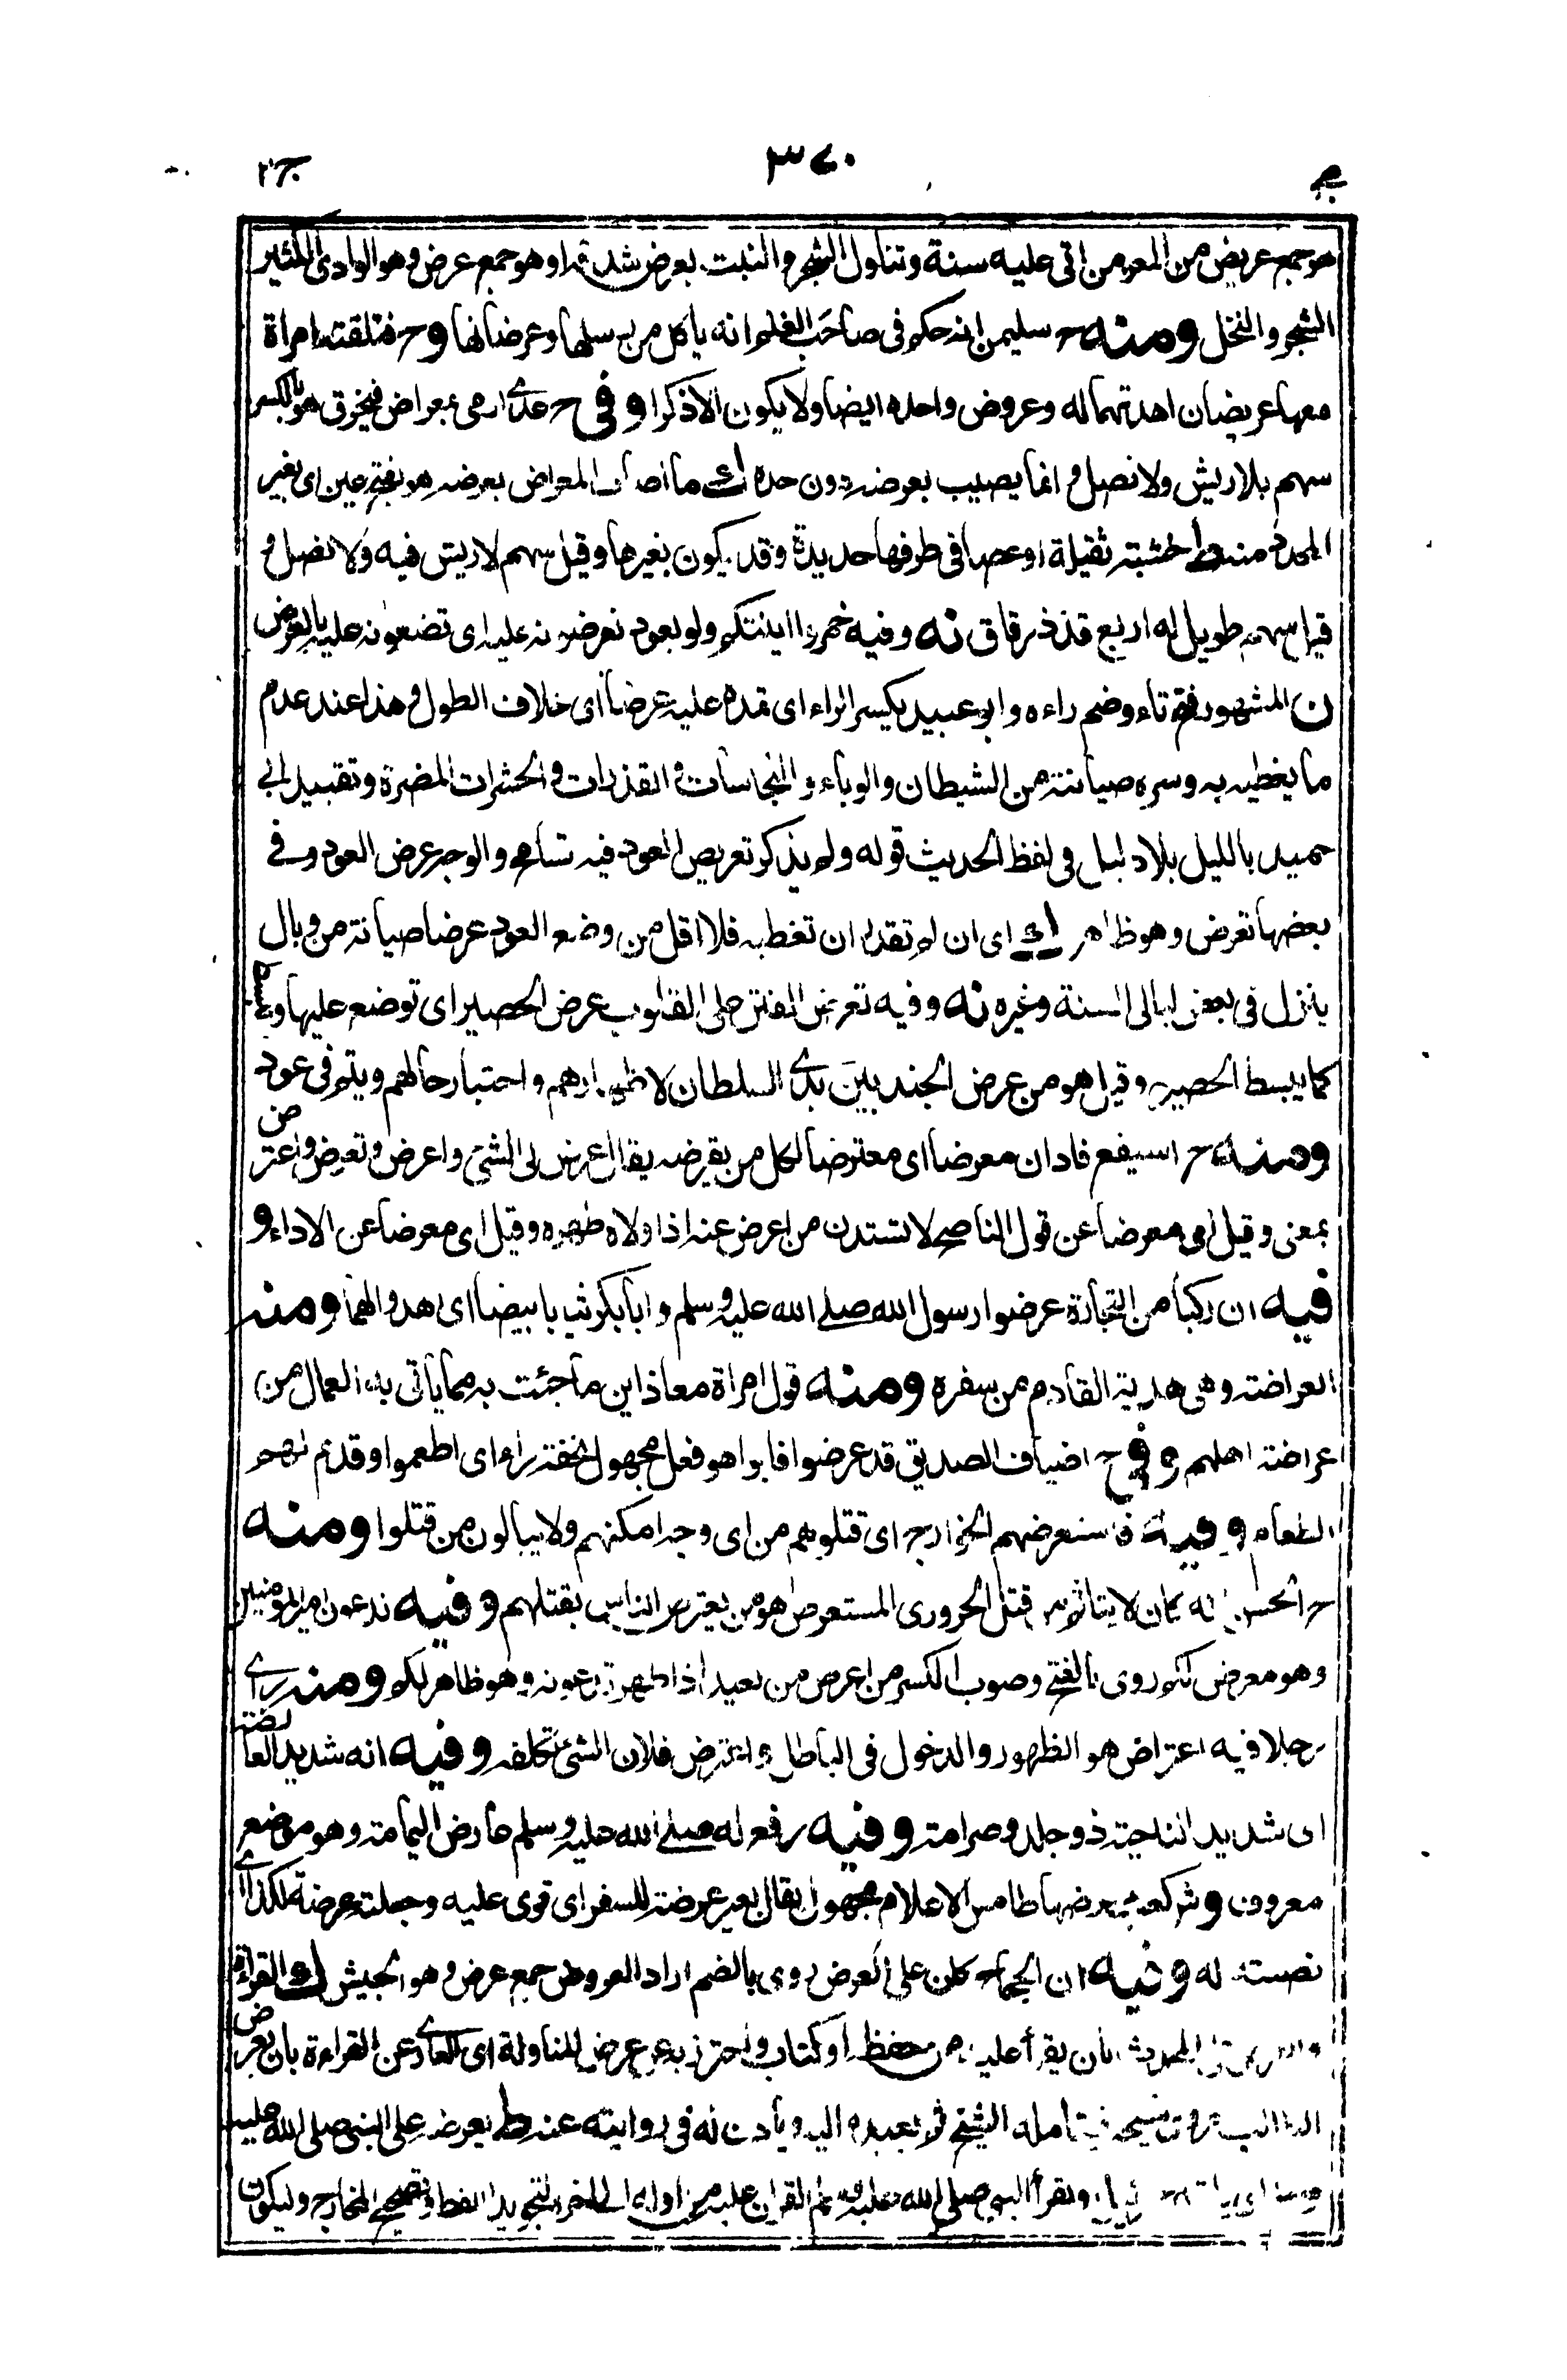 ٣٧٠
ج٢
هو جمع عريض من المعز من اتى عليه سنة وتناول الشجر والنبت بعرض شدقه او هو جمع عرض وهو الوادى الكثير
الشجر والنخل ومنه ح سليمن انه حكم فى صاحب الغلم انه ياكل من رسلها وعرضانها وح فتلقته امراة
معها عريضان اهدتهما له وعروض واحده ايضا ولا يكون الا ذكرا وفى ح عدى ارمى بمعراض فيخزق هو بالكسر
سهم بلا ريش ولا نصل وانما يصيب بعرضه دون حده ك ما اصاب المعراض بعرضه هو بفتح عين اى بغير
المحدد منه ط خشبته ثقيلة او عصا فى طرفها حديدة وقد يكون بغيرها وقيل سهم لا ريش فيه ولا نصل و
قيل سهم طويل له اربع قذذ رقاق نه وفيه خمروا اينتكم ولو بعود تعرضونه عليه اى تضعونه عليه بالعرض
ن المشهور فتح تاء وضم راءه وابو عبيد يكسر الراء اى تمده عليه عرضا اى خلاف الطول وهذا عند عدم
ما يغطيه به وسره صيانته من الشيطان والوباء والنجاسات والقذرات والحشرات المضرة وتقييد ابى
حميد بالليل بلا دليل فى لفظ الحديث قوله ولم يذكر تعريض العود فيه تسامح والوجه عرض العود وفى
بعضها تعرض وهو ظاهر ك اى ان لم تقدر ان تغطيه فلا اقل من وضع العود عرضا صيانة من وبال
ينزل فى بعض ليالى السنة وغيره نه وفيه تعرض الفتن على القلوب عرض الحصير اى توضع عليها وتبسط
كما يبسط الحصير وقيل هو من عرض الجند بين يدى السلطان لاظهارهم واختبار حالهم ويتم فى عود
ومنه ح اسيفع فادان معرضا اى معترضا لكل من يقرضه يقال عرض لى الشئ واعرض وتعرض واعترض
بمعنى وقيل اى معرضا عن قول الناصح لا تستدن من اعرض عنه اذا ولاه ظهره وقيل اى معرضا عن الاداء و
فيه ان ركبا من التجارة عرضوا رسول الله صلى الله عليه وسلم وابا بكر ثيابا بيضا اى اهدوا لهما ومنه
العراضته وهى هدية القادم من سفره ومنه قول امراة معاذ اين ما جئت به مما ياتى به العمال من
عراضة اهلهم وفى ح اضياف الصديق قد عرضوا فابوا هو فعل مجهول بخفته راء اى اطعموا وقدم لهم
الطعام وفيه فاستعرضهم الخوارج اى قتلوهم من اى وجه امكنهم ولا يبالون من قتلوا ومنه
ح الحسن انه كان لا يتاثم من قتل الحرورى المستعرض هو من يعترض الناس بقتلهم وفيه ندعون امير المؤمنين
وهو معرض لكم روى بالفتح وصوب الكسر من اعرض من بعيد اذا ظهر تدعونه وهو ظاهر لكم ومنه راى
رجلا فيه اعتراض هو الظهور والدخول فى الباطل واعترض فلان الشئ تكلفه وفيه انه شديد العارضته
اى شديد الناحيته ذو جلد وصرامته وفيه رفع له صلى الله عليه وسلم عارض اليمامته وهو موضع
معروف وش كعب عرضتها طامس الاعلام مجهول يقال بعير عرضته للسفر اى قوى عليه وجعلته عرضة لكذا اى
نصبته له وفيه ان الحجاج كان على العرض روى بالضم اراد العروض جمع عرض وهو الجيش ك القراءة
والعرض على المحدث بان يقرأ عليه من حفظ او كتاب واحترز به عن عرض المناولة اى العارى عن القراءة بان يعرض
الطالب مروى شيخه فيتامله الشيخ ثم يعيده اليه وياذن له فى روايته عنه ط يعرض على النبى صلى الله عليه
ويقرأ النبى صلى الله عليه القران عليه من اوله الى اخره لتجويد اللفظ وتصحيح المخارج وليكون